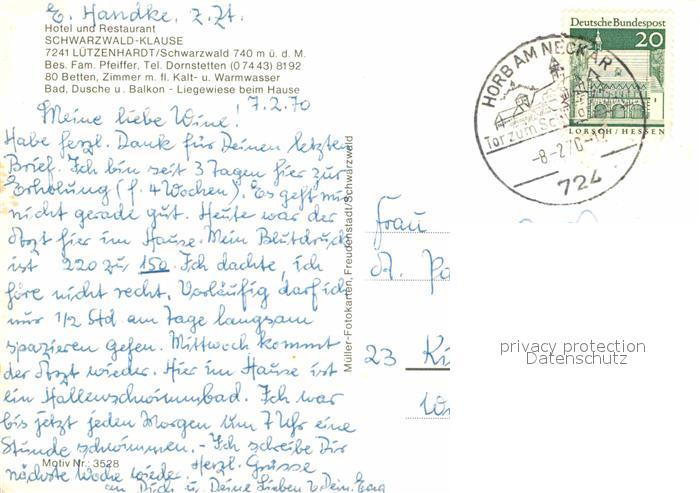 E. Handke, z. Zt.
Hotel und Restaurant
SCHWARZWALD-KLAUSE
7241 LÜTZENHARDT/Schwarzwald 740 m ü. d. M.
Bes. Fam. Pfeiffer, Tel. Dornstetten (0 74 43) 8192
80 Betten, Zimmer m. fl. Kalt- u. Warmwasser
Bad, Dusche u. Balkon - Liegewiese beim Hause
7.2.70
Meine liebe Wine!
Habe herzl. Dank für Deinen letzten
Brief. Ich bin seit 3 Tagen hier zur
Erholung (f. 4 Wochen). Es geht mir
nicht gerade gut. Heute war der
Arzt hier im Hause. Mein Blutdruck
ist 220 zu 150. Ich dachte, ich
höre nicht recht. Vorläufig darf ich
nur 1/2 Std am Tage langsam
spazieren gehen. Mittwoch kommt
der Arzt wieder. Hier im Hause ist
ein Hallenschwimmbad. Ich war
bis jetzt jeden Morgen um 7 Uhr eine
Stunde schwimmen. - Ich schreibe Dir
nächste Woche wieder. Herzl. Grüsse
an Dich u. Deine Lieben v. Dein.
Motiv Nr.: 3528
Müller-Fotokarten, Freudenstadt/Schwarzwald
Deutsche Bundespost
20
LORSCH/HESSEN
HORB AM NECKAR
Tor zum
-8-2.70-12
724
Frau
23 Ki
privacy protection
Datenschutz